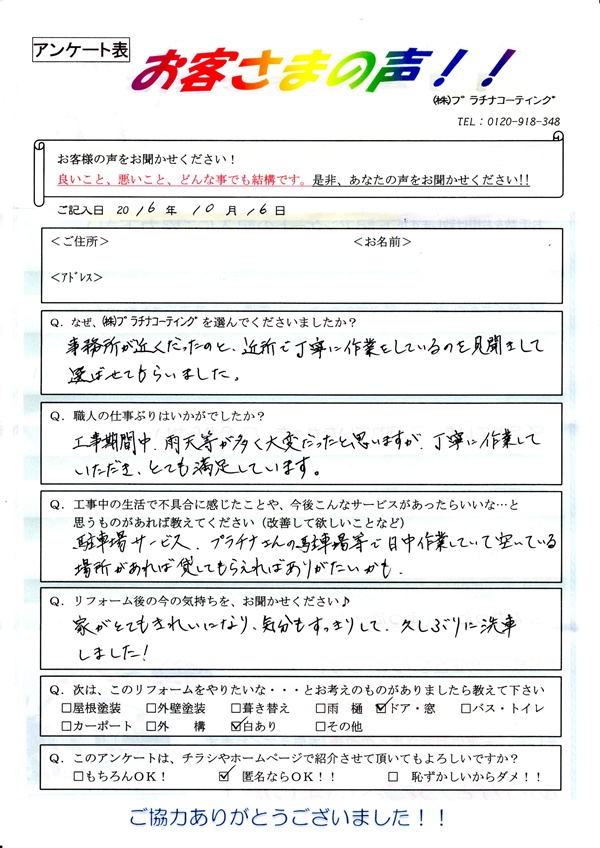 アンケート表
お客さまの声！！
㈱プラチナコーティング
TEL：0120-918-348
お客様の声をお聞かせください！
良いこと、悪いこと、どんな事でも結構です。是非、あなたの声をお聞かせください!!
ご記入日 2016年 10月 16日
＜ご住所＞ ＜お名前＞
＜ｱﾄﾞﾚｽ＞
Q．なぜ、㈱ﾌﾟﾗﾁﾅｺｰﾃｨﾝｸﾞを選んでくださいましたか？
事務所が近くだったのと、近所で丁寧に作業をしているのを見聞きして
選ばせてもらいました。
Q．職人の仕事ぶりはいかがでしたか？
工事期間中、雨天等が多く大変だったと思いますが、丁寧に作業して
いただき、とても満足しています。
Q．工事中の生活で不具合に感じたことや、今後こんなサービスがあったらいいな…と
思うものがあれば教えてください（改善して欲しいことなど）
駐車場サービス、プラチナさんの駐車場等で日中作業していて空いている
場所があれば貸してもらえればありがたいかも、
Q．リフォーム後の今の気持ちを、お聞かせください♪
家がとてもきれいになり、気分もすっきりして、久しぶりに洗車
しました！
Q．次は、このリフォームをやりたいな・・・とお考えのものがありましたら教えて下さい
□屋根塗装 □外壁塗装 □葺き替え □雨 樋 ☑ドア・窓 □バス・トイレ
□カーポート □外 構 ☑白あり □その他
Q．このアンケートは、チラシやホームページで紹介させて頂いてもよろしいですか？
□もちろんOK！ ☑ 匿名ならOK！！ □ 恥ずかしいからダメ！！
ご協力ありがとうございました！！